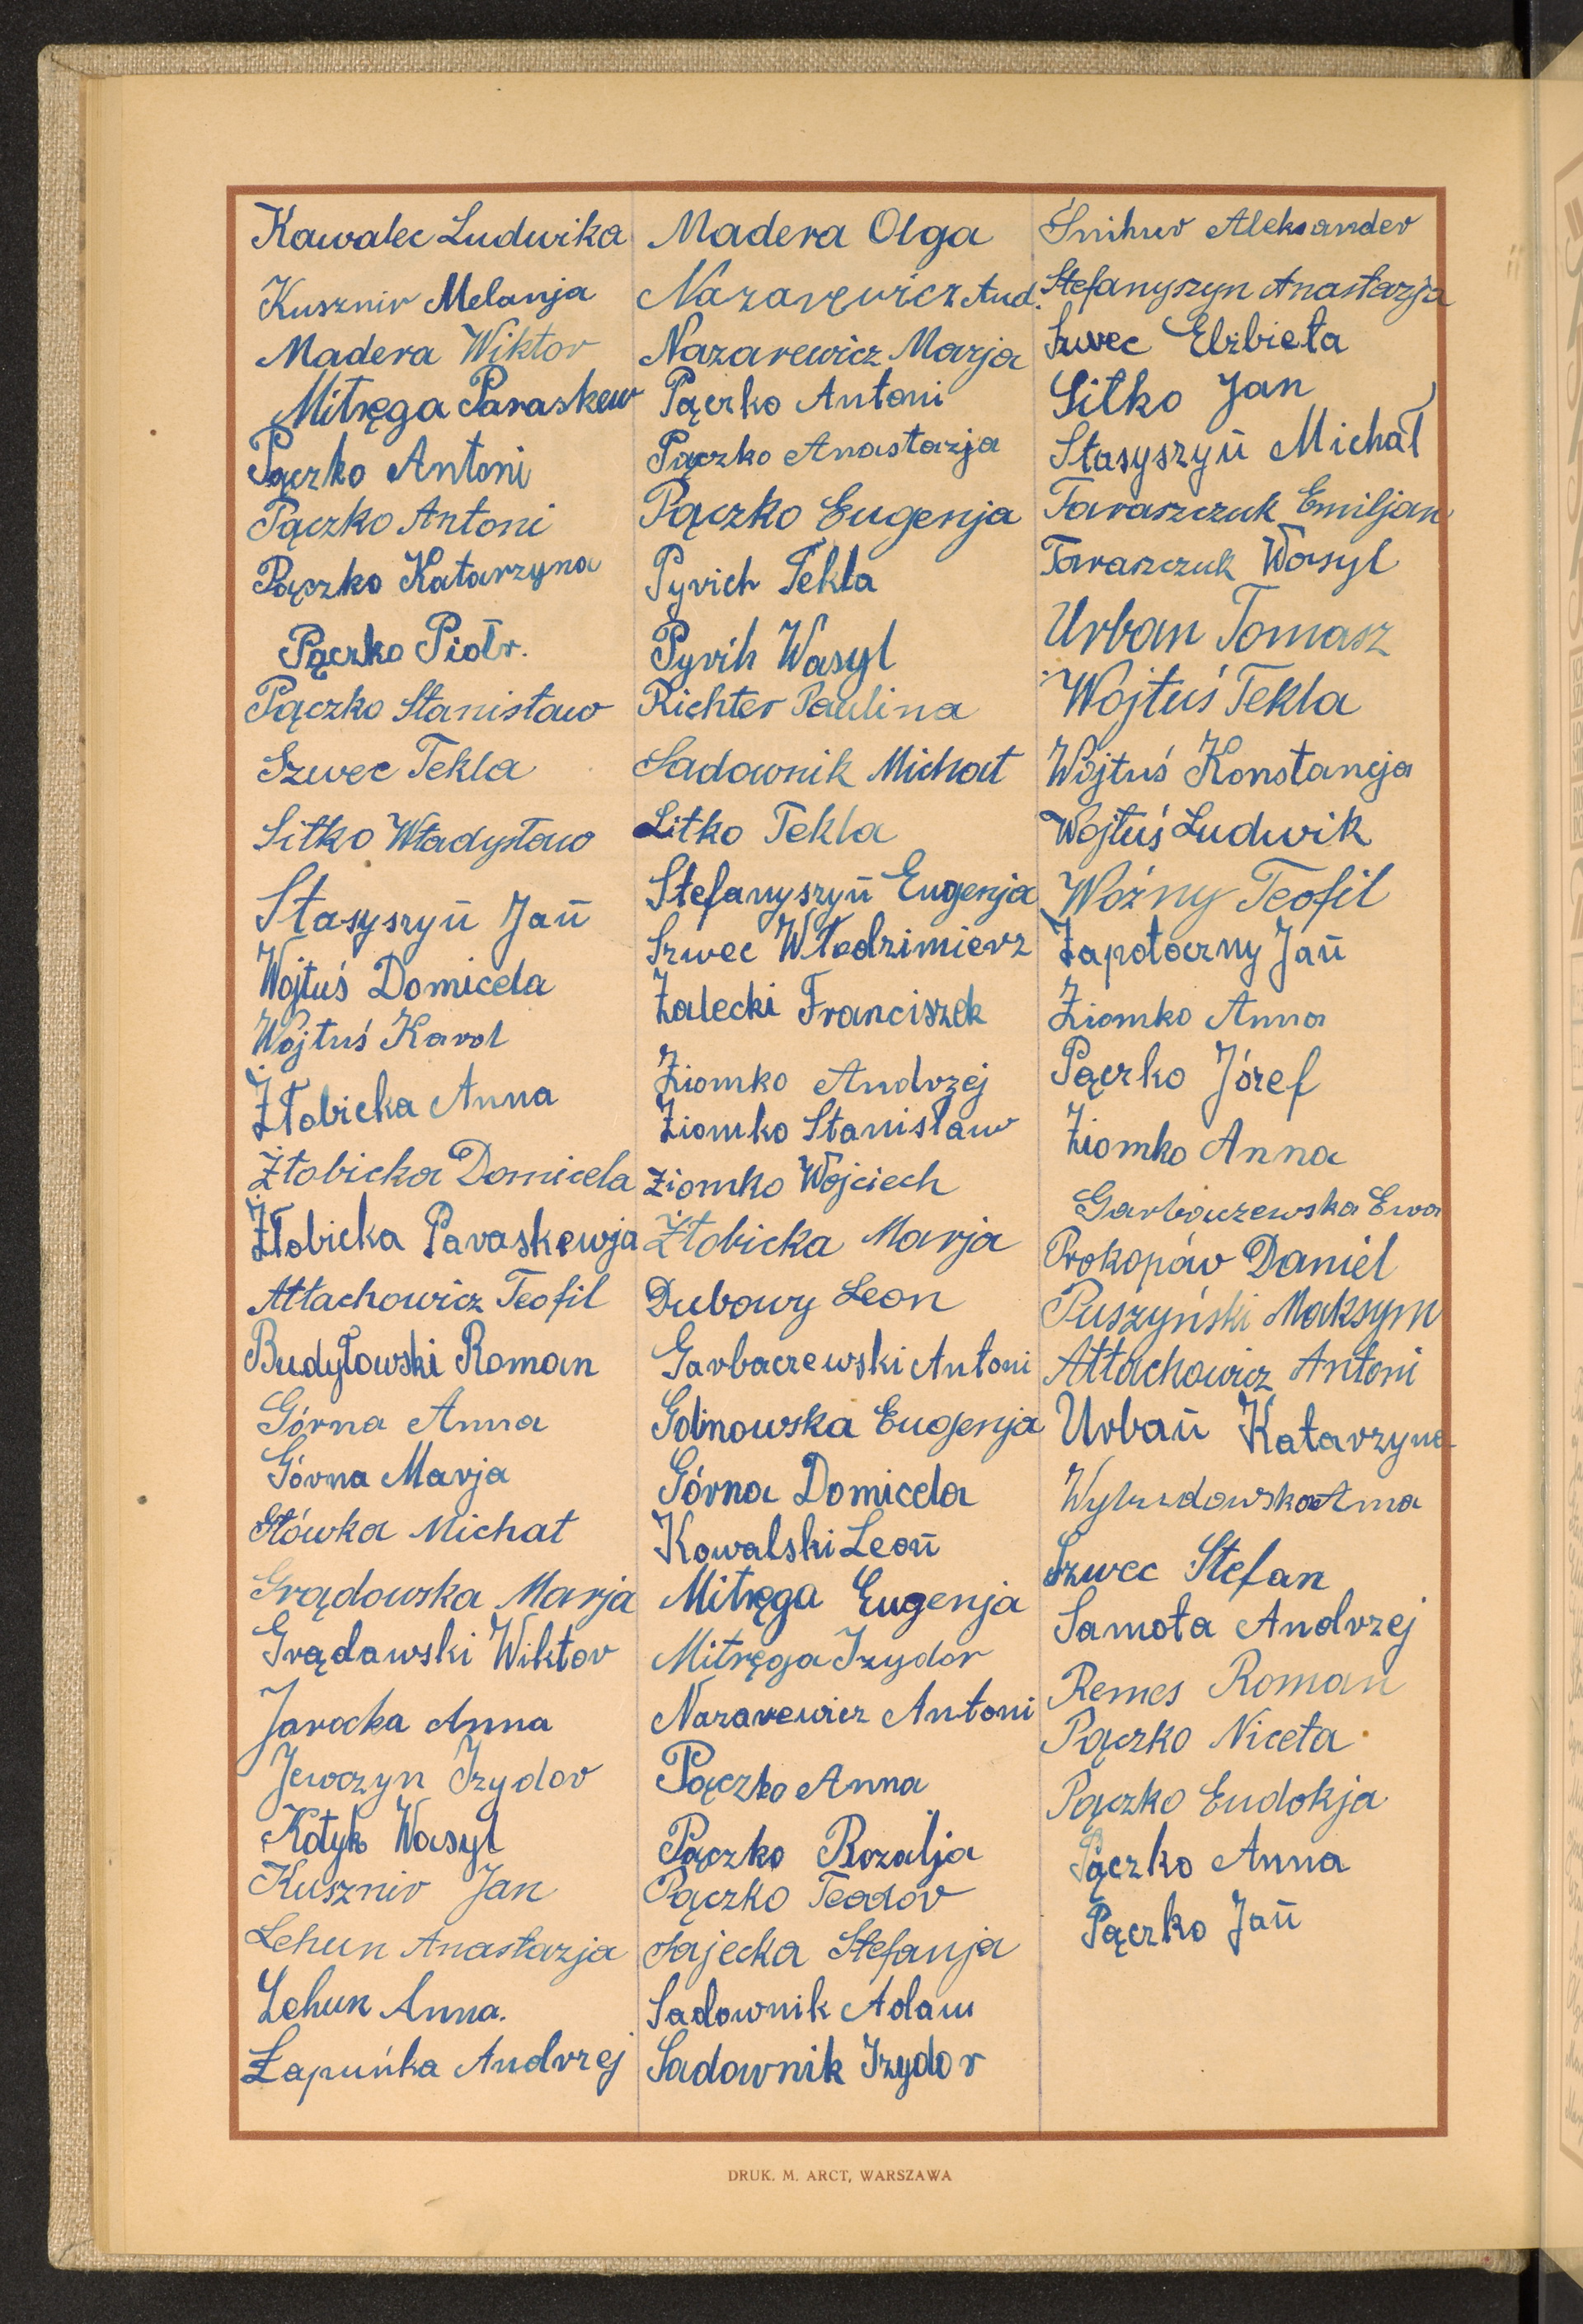 Kawalec Ludwika
Kusznir Melanja
Madera Wiktor
Mitręga Paraskew
Pączko Antoni
Pączko Antoni
Pączko Katarzyna
Pączko Piotr.
Pączko Stanisław
Szwec Tekla
Sitko Władysław
Stasyszyn Jan
Wojtuś Domicela
Wojtuś Karol
Żłobicka Anna
Żłobicka Domicela
Żłobicka Paraskewja
Attachowicz Teofil
Budyłowski Roman
Górna Anna
Górna Marja
Główka Michał
Grądowska Marja
Grądowski Wiktor
Jarocka Anna
Jewczyn Izydor
Kotyk Wasyl
Kusznir Jan
Lehun Anastazja
Lehun Anna.
Łapuńka Andrzej
Madera Olga
Nazarewicz Aud.
Nazarewicz Marja
Pączko Antoni
Pączko Anastazja
Pączko Eugenja
Pyrich Tekla
Pyrih Wasyl
Richter Paulina
Sadownik Michał
Sitko Tekla
Stefanyszyn Eugenja
Szwec Włodzimierz
Zalecki Franciszek
Ziomko Andrzej
Ziomko Stanisław
Ziomko Wojciech
Żłobicka Marja
Dubowy Leon
Garbaczewski Antoni
Golinowska Eugenja
Górna Domicela
Kowalski Leon
Mitręga Eugenja
Mitręga Izydor
Nazarewicz Antoni
Pączko Anna
Pączko Rozalja
Pączko Teodor
Sajecka Stefanja
Sadownik Adam
Sadownik Izydor
Śnihur Aleksander
Stefanyszyn Anastazja
Szwec Elżbieta
Sitko Jan
Stasyszyn Michał
Taraszczuk Emiljan
Taraszczuk Wasyl
Urban Tomasz
Wojtuś Tekla
Wojtuś Konstancja
Wojtuś Ludwik
Woźny Teofil
Zapotoczny Jan
Ziomko Anna
Pączko Józef
Ziomko Anna
Garbaczewska Ewa
Prokopów Daniel
Puszyński Maksym
Attachowicz Antoni
Urban Katarzyna
Anna
Szwec Stefan
Samota Andrzej
Remes Roman
Pączko Niceta
Pączko Eudokja
Pączko Anna
Pączko Jan
DRUK. M. ARCT, WARSZAWA